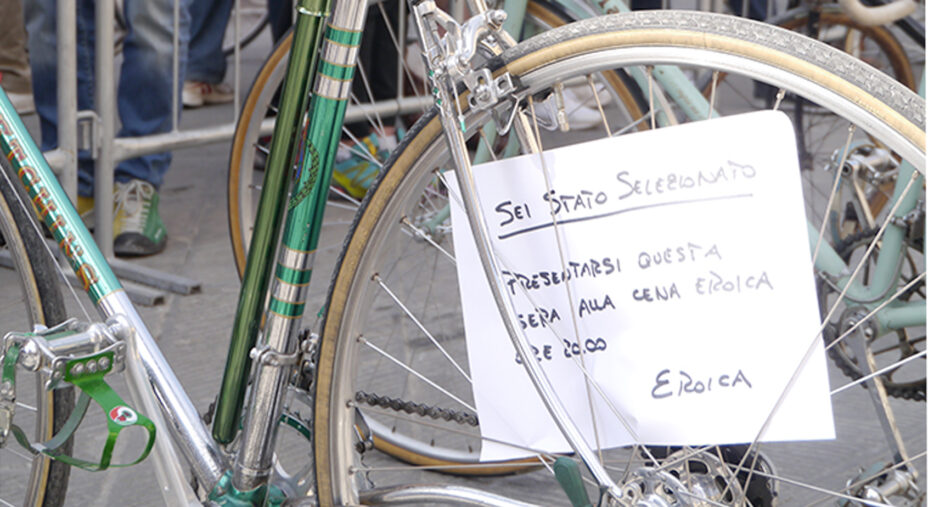 SEI STATO SELEZIONATO
PRESENTARSI QUESTA
SERA ALLA CENA EROICA
ORE 20.00
EROICA